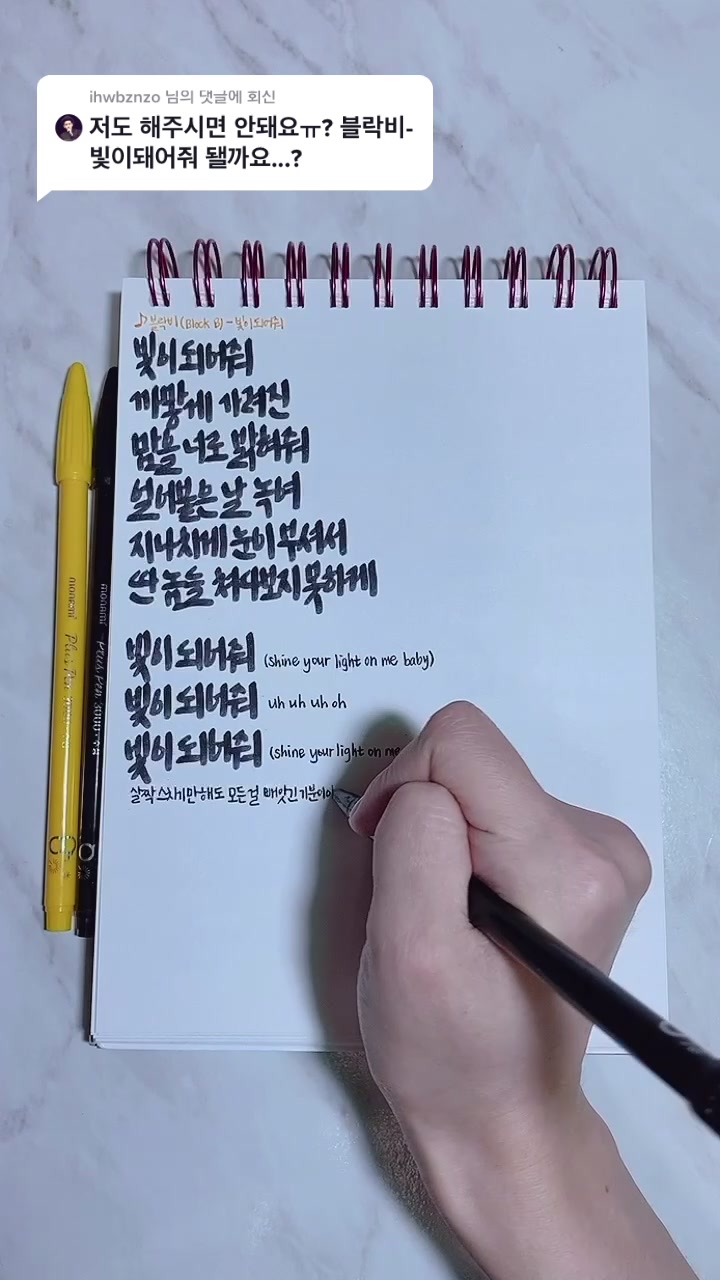 ihwbznzo 님의 댓글에 회신
저도 해주시면 안돼요ㅠ? 블락비-
빛이돼어줘 됄까요...?
♪블락비(Block B) - 빛이되어줘
빛이되어줘
까맣게 가려진
맘을 너로 밝혀줘
얼어붙은 날 녹여
지나치게 눈이 부셔서
딴 놈들 쳐다보지 못하게
빛이 되어줘 (shine your light on me baby)
빛이 되어줘 uh uh uh oh
빛이 되어줘 (shine your light on me
살짝 스치기만 해도 모든 걸 빼앗긴 기분이야
monami Plus Pen
monami Plus Pen 3000